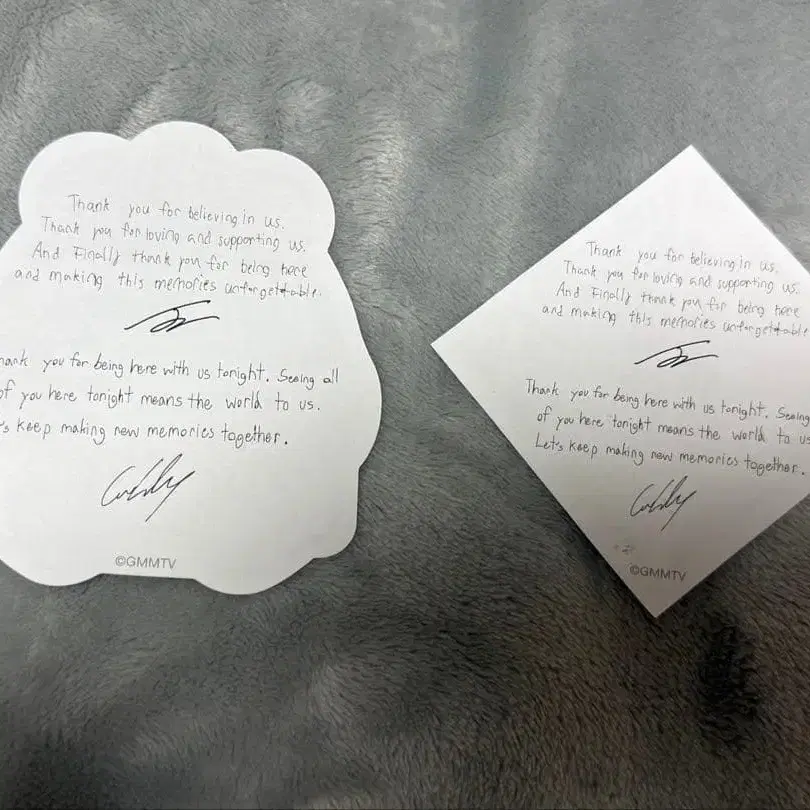 Thank you for believing in us.
Thank you for loving and supporting us.
And Finally thank you for being here
and making this memories unforgettable.
hank you for being here with us tonight. Seeing all
of you here tonight means the world to us.
's keep making new memories together.
©GMMTV
Thank you for believing in us.
Thank you for loving and supporting us.
And Finally thank you for being here
and making this memories unforgettable
Thank you for being here with us tonight. Seeing
of you here tonight means the world to us
Let's keep making new memories together.
©GMMTV